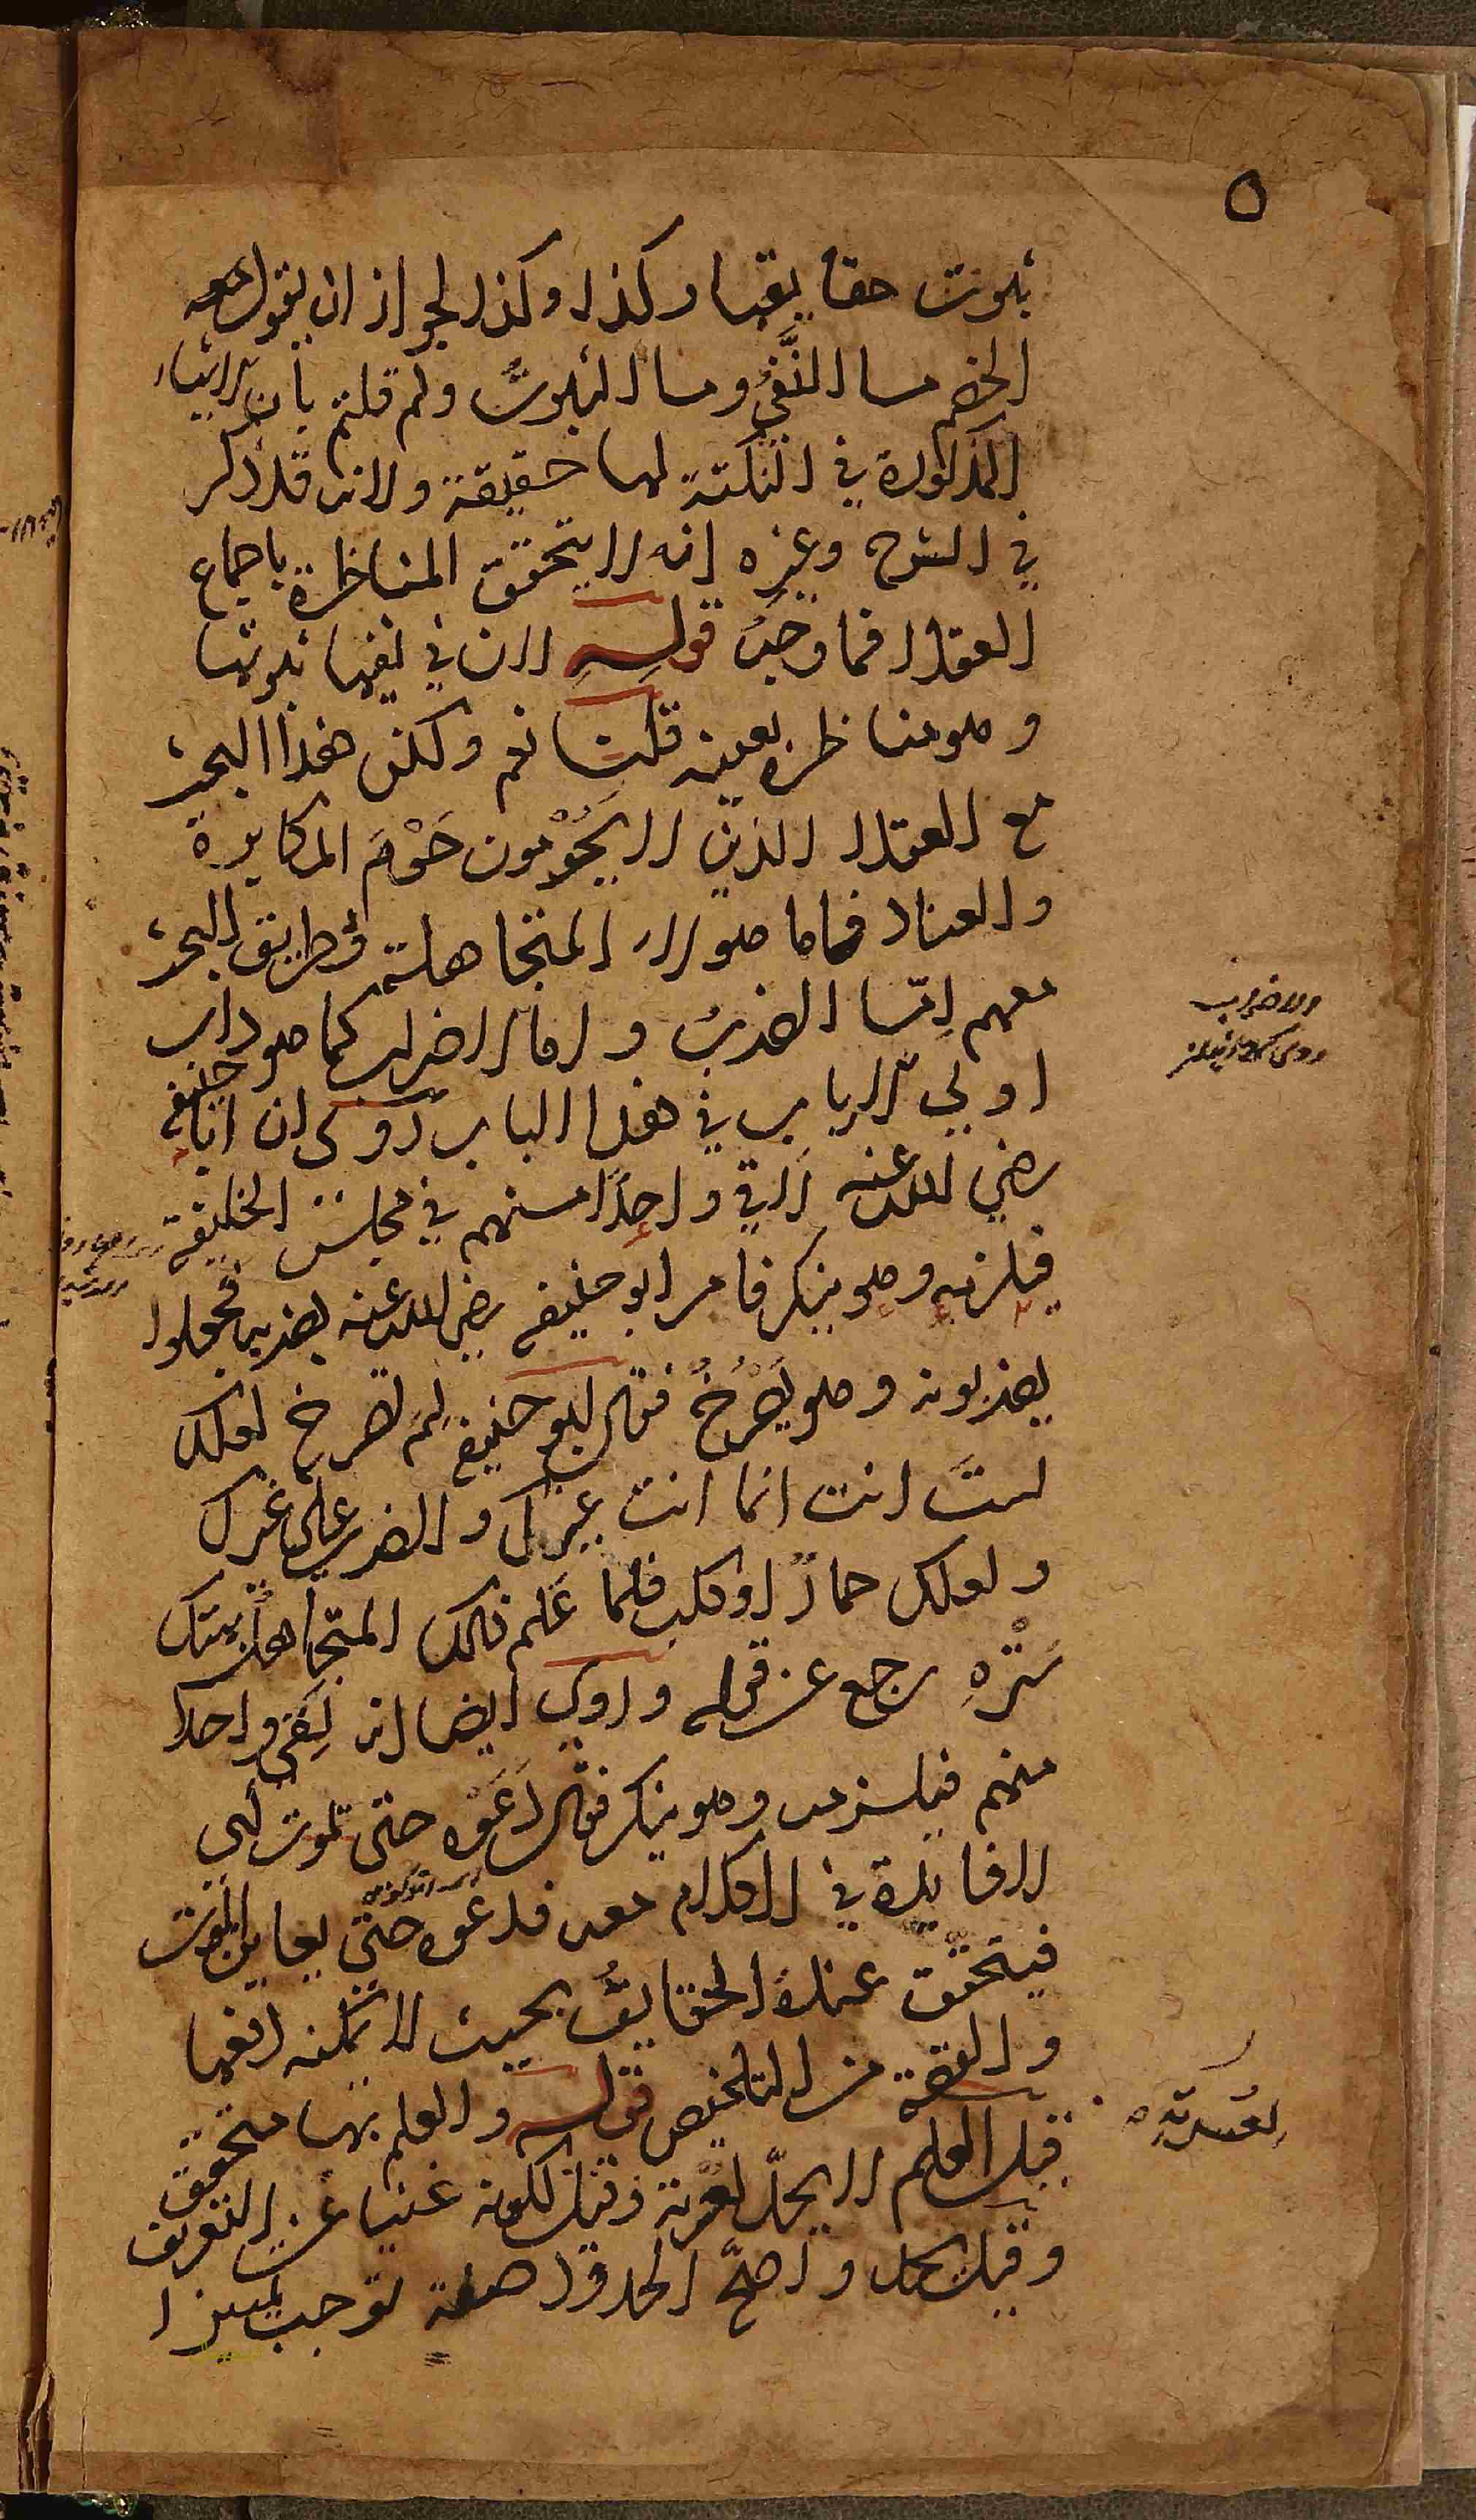 ٥
ثبوت حقايقها وكذا وكذا لجواز ان يقول معه
الخصم ما النَّفىُ وما الثبوتُ ولم قلتم بأن الاشياء
المذكورة في النكتة لها حقيقة ولانه قد ذكر
في الشرح وغيره انه لا يتحقق المناظرة باجماع
العقلا فما وجهُ قولِــهِ لان في نفيها ثبوتها
وهو مناظرة بعينه قلنا نعم ولكن هذا البحث
مع العقلا الذين لا يَحُوْمون حَوْمَ المكابرة
والعناد فاما هولاء المتجاهلة فطريق البحث
معهم اِمّا الضربُ واما الاضراب كما هو داب
اولي الالباب في هذا الباب روى ان ابا حنيفة
رضي الله عنه لاقي واحدًا منهم في مجلس الخليفة
فيلزمه وهو ينكر فامر ابو حنيفة رضي الله عنه بضربه فجعلوا
يضربونه وهو يَصْرُخُ فقال ابو حنيفة لِمَ تصرخ لعلك
لستَ انت انما انت غيرك والضرب على غيرك
ولعلك حمارٌ او كلب فلما عَلم ذلك المتجاهلُ بهتك
سَتْرِهِ رجع عن قوله وروي ايضا انه لَقى واحدا
منهم فيلزمه وهو ينكر فقال دَعَوْه حتى تموت اي
لا فايدة في الكلام معه فدعوه حتى يعاين الموت
فيتحقق عنده الحقايقُ بحيث لا يمكنه دفعها
والقصة من التلخيص قولــه والعلم بها متحقق
قيل العلم لا يحدّ لعسرته وقيل لكونه غنيا عن التعريف
وقيل يحد واصحّ الحدود صفة توجب تمييزا
والاضراب